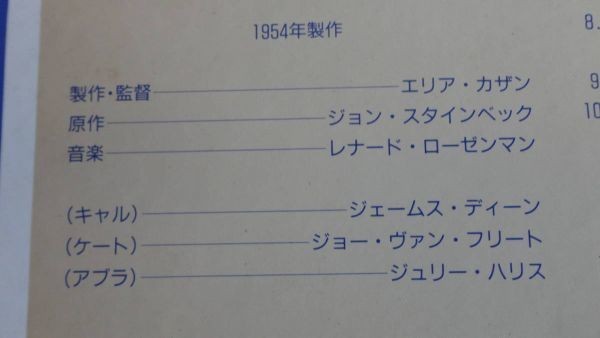 1954年製作
8.
製作・監督 エリア・カザン
9
原作 ジョン・スタインベック
10
音楽 レナード・ローゼンマン
(キャル) ジェームス・ディーン
(ケート) ジョー・ヴァン・フリート
(アブラ) ジュリー・ハリス